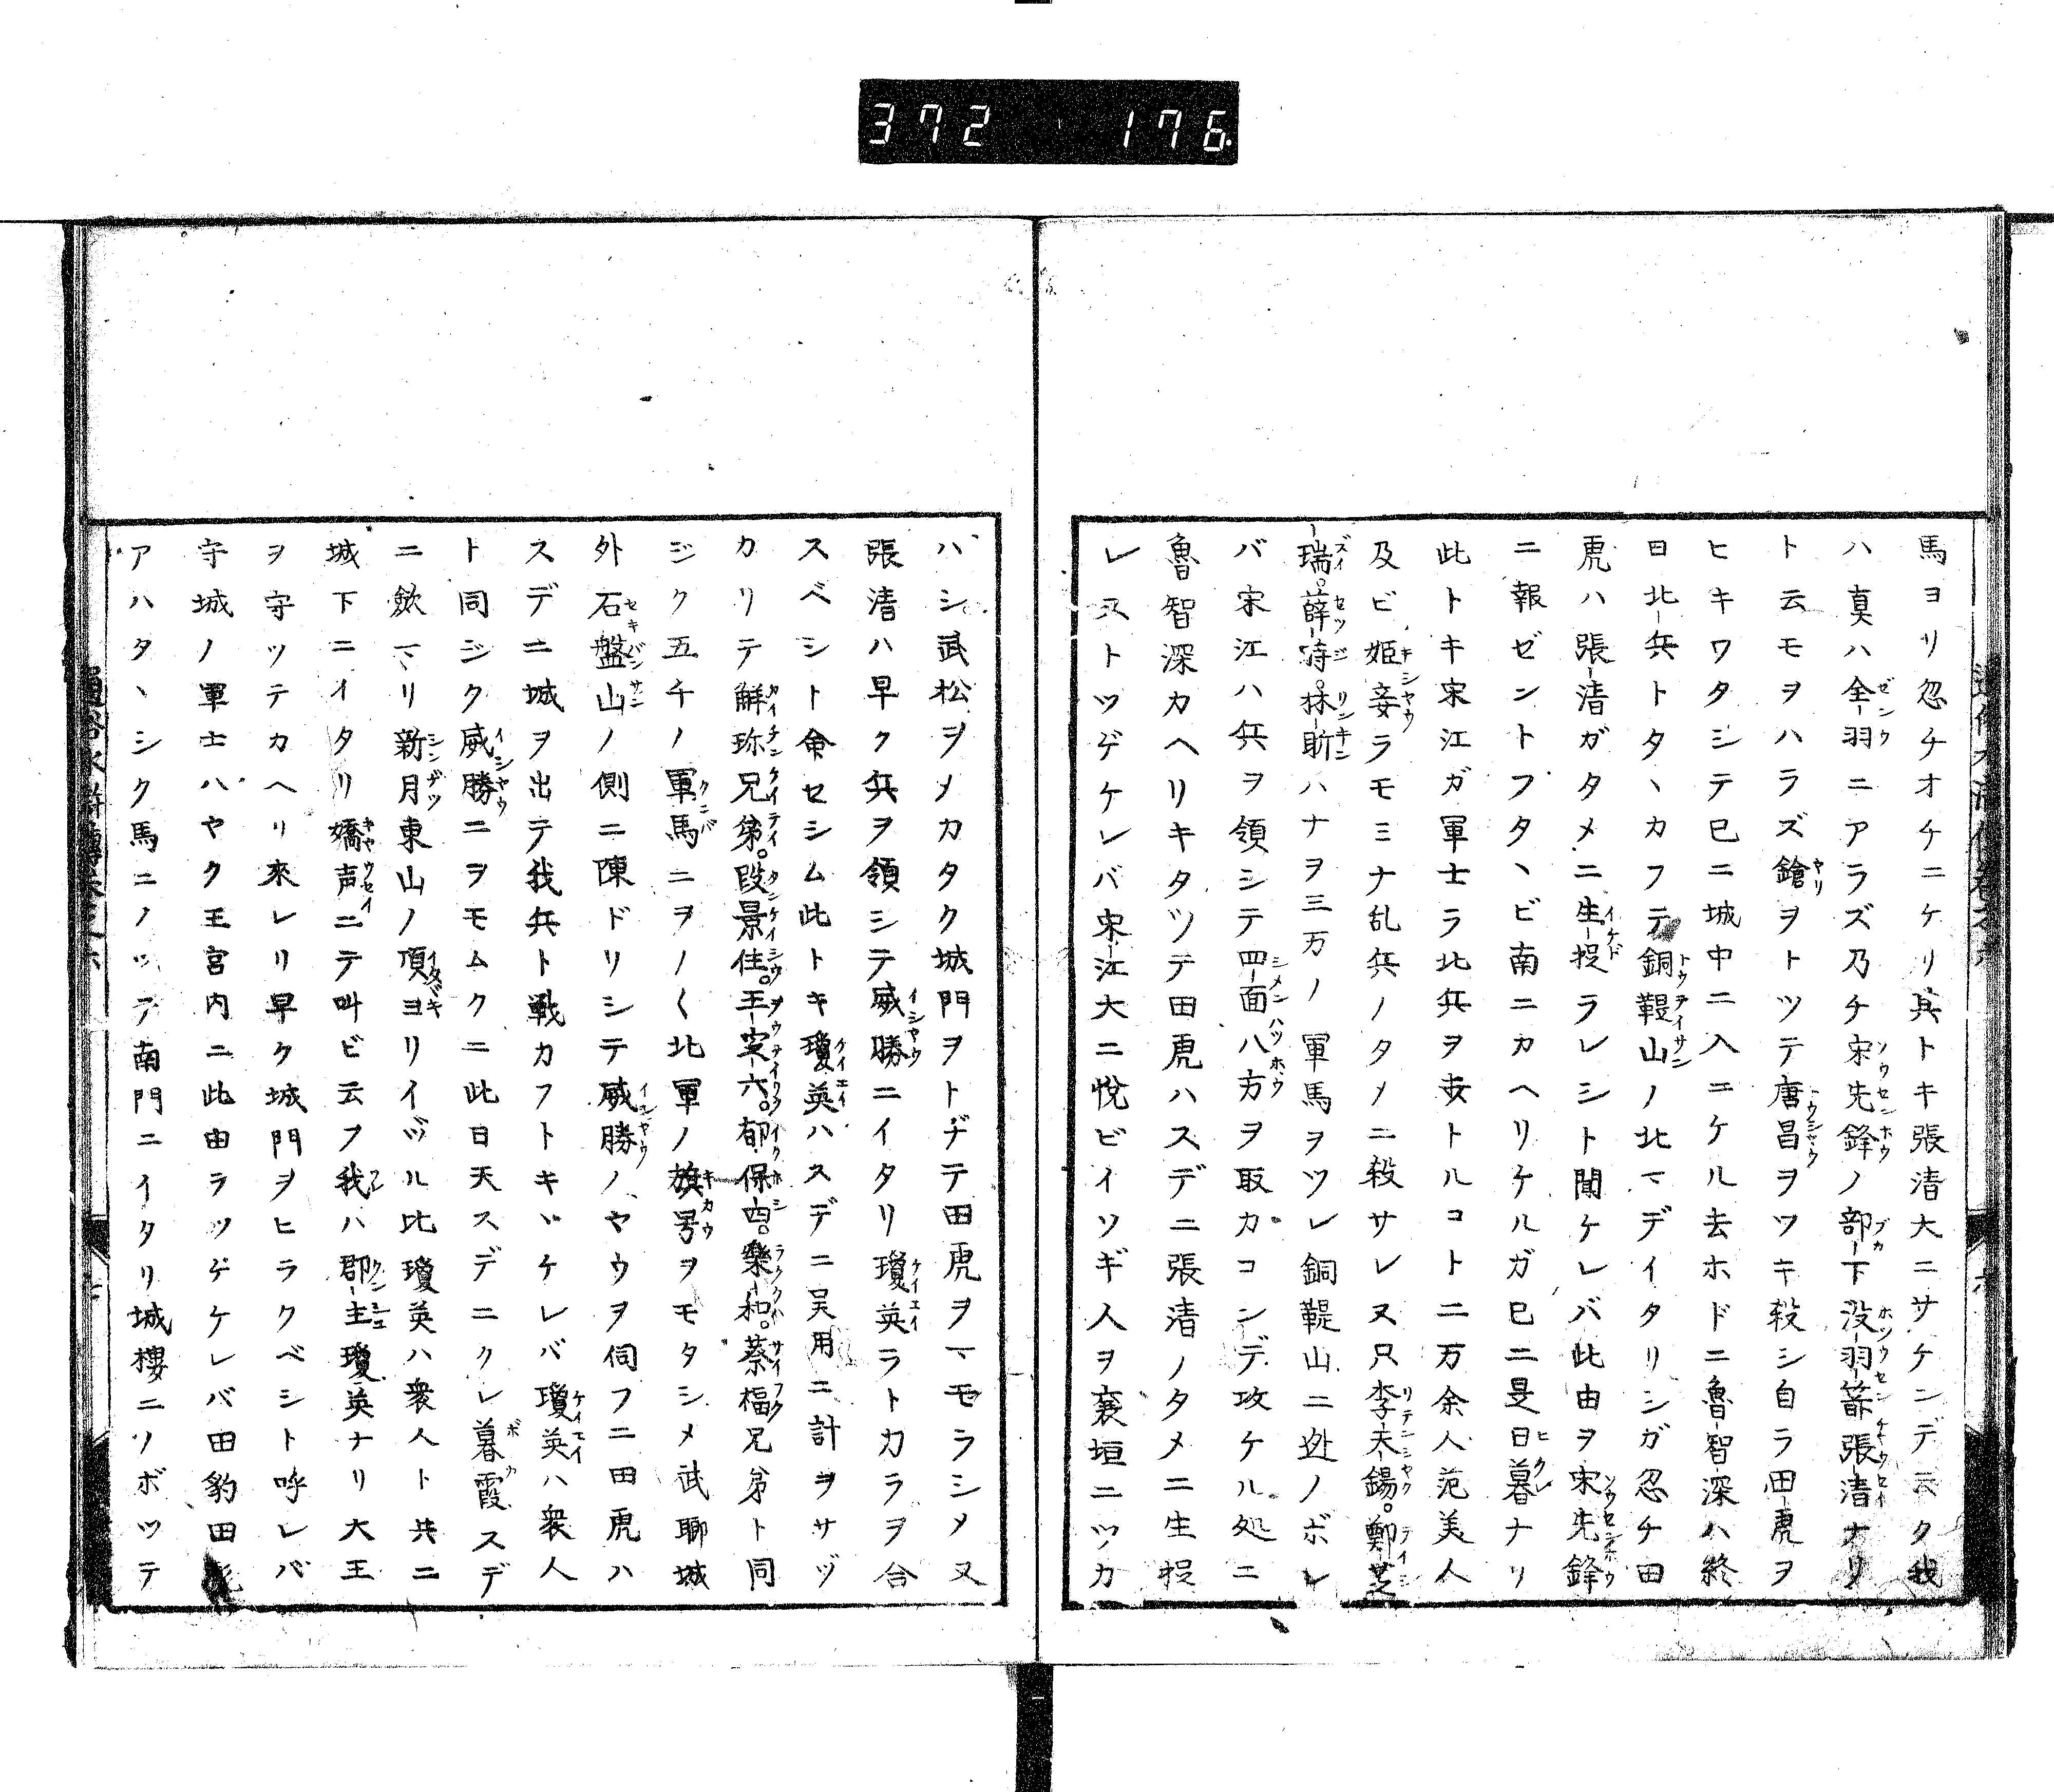 372 176
馬ヨリ忽チオチニケリ其トキ張清大ニサケンデ云ク我
ハ真ハ全羽ニアラズ乃チ宋先鋒ノ部下没羽箭張清ナリ
ト云モヲハラズ鎗ヲトツテ唐昌ヲツキ殺シ自ラ田虎ヲ
ヒキワタシテ已ニ城中ニ入ニケル去ホドニ魯智深ハ終
日北兵トタヽカフテ銅鞮山ノ北マデイタリシガ忽チ田
虎ハ張清ガタメニ生捉ラレシト聞ケレバ此由ヲ宋先鋒
ニ報ゼントフタヽビ南ニカヘリケルガ已ニ是日暮ナリ
此トキ宋江ガ軍士ラ北兵ヲ害トルコト二万余人范美人
及ビ姫妾ラモミナ乱兵ノタメニ殺サレヌ只李天錫。鄭芝
瑞。薛時。林昕ハナヲ三万ノ軍馬ヲツレ銅鞮山ニ迯ノボレ
バ宋江ハ兵ヲ領シテ四面八方ヲ取カコンデ攻ケル処ニ
魯智深カヘリキタツテ田虎ハスデニ張清ノタメニ生捉
レヌトツゲケレバ宋江大ニ悦ビイソギ人ヲ襄垣ニツカ
ハシ武松ヲメカタク城門ヲトヂテ田虎ヲマモラシメ又
張清ハ早ク兵ヲ領シテ威勝ニイタリ瓊英ラトカラヲ合
スベシト命セシム此トキ瓊英ハスデニ呉用ニ計ヲサヅ
カリテ解珎兄弟。段景住。王定六。郁保四。樂和。蔡福兄弟ト同
ジク五千ノ軍馬ニヲノ〱北軍ノ旗号ヲモタシメ武郷城
外石盤山ノ側ニ陳ドリシテ威勝ノヤウヲ伺フニ田虎ハ
スデニ城ヲ出テ我兵ト戦カフトキヽケレバ瓊英ハ衆人
ト同ジク威勝ニヲモムクニ此日天スデニクレ暮霞スデ
ニ斂マリ新月東山ノ頂ヨリイヅル比瓊英ハ衆人ト共ニ
城下ニイタリ嬌声ニテ叫ビ云フ我ハ郡主瓊英ナリ大王
ヲ守ツテカヘリ來レリ早ク城門ヲヒラクベシト呼レバ
守城ノ軍士ハヤク王宮内ニ此由ラツゲケレバ田豹田彪
アハタヽシク馬ニノツテ南門ニイタリ城樓ニノボツテ